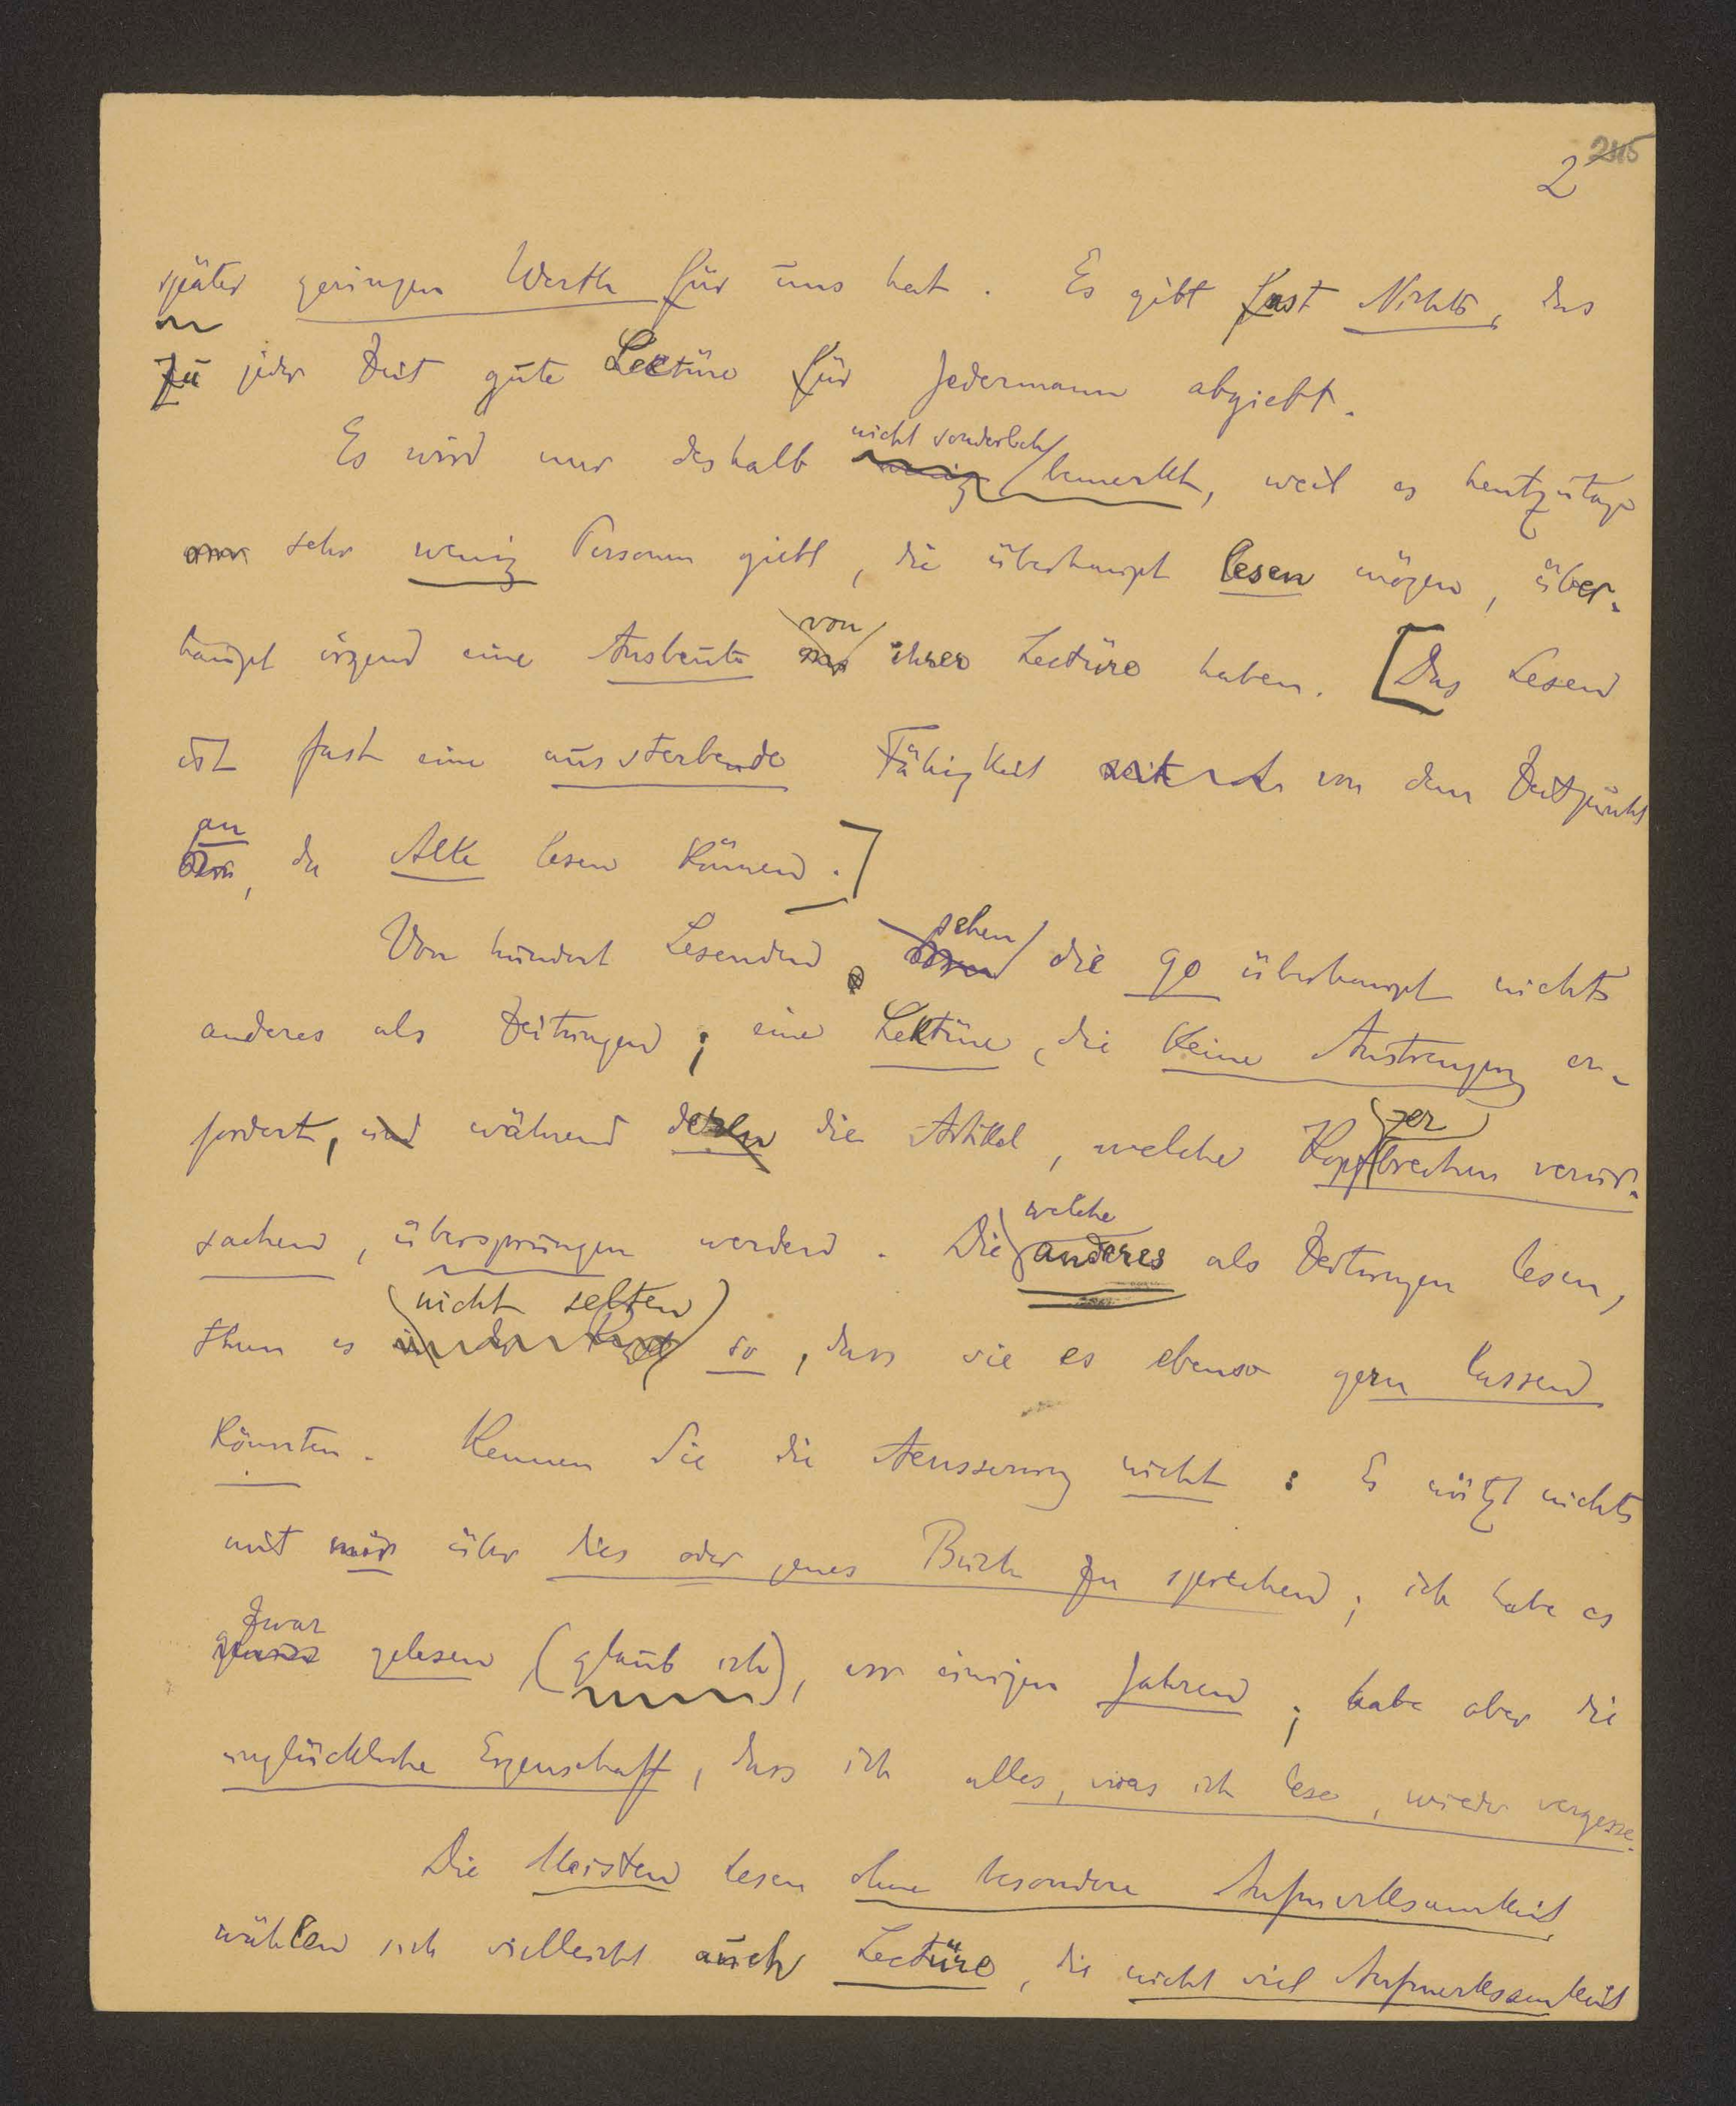 245
2
später geringen Werth für uns hat. Es gibt fast Nichts, das
zu jeder Zeit gute Lectüre für Jedermann abgiebt.
nicht sonderlich
Es wird nur deshalb wenig bemerkt, weil es heutzutage
sehr wenig Personen giebt, die überhaupt lesen mögen, über-
von
haupt irgend eine Ausbeute ihrer Lectüre haben. [Das Lesen
ist fast eine aussterbende Fähigkeit seit von dem Zeitpunkt
an
da Alle lesen können.]
sehen
Von hundert Lesenden die 90 überhaupt nichts
anderes als Zeitungen; eine Lektüre, die keine Anstrengung er-
fordert, und während deren die Artikel, welche Kopfbrechen verur-
zer
sachen, übersprungen werden. Die anderes als Zeitungen lesen,
welche
nicht selten
thun es in der Regel so, dass sie es ebenso gern lassen
könnten. Kennen Sie die Aeusserung nicht: Es nützt nichts
mit mir über dies oder jenes Buch zu sprechen; ich habe es
zwar
gelesen (glaub ich), vor einigen Jahren; habe aber die
unglückliche Eigenschaft, dass ich alles, was ich lese, wieder vergesse.
Die Meisten lesen ohne besondere Aufmerksamkeit
wählen sich vielleicht auch Lectüre, die nicht viel Aufmerksamkeit